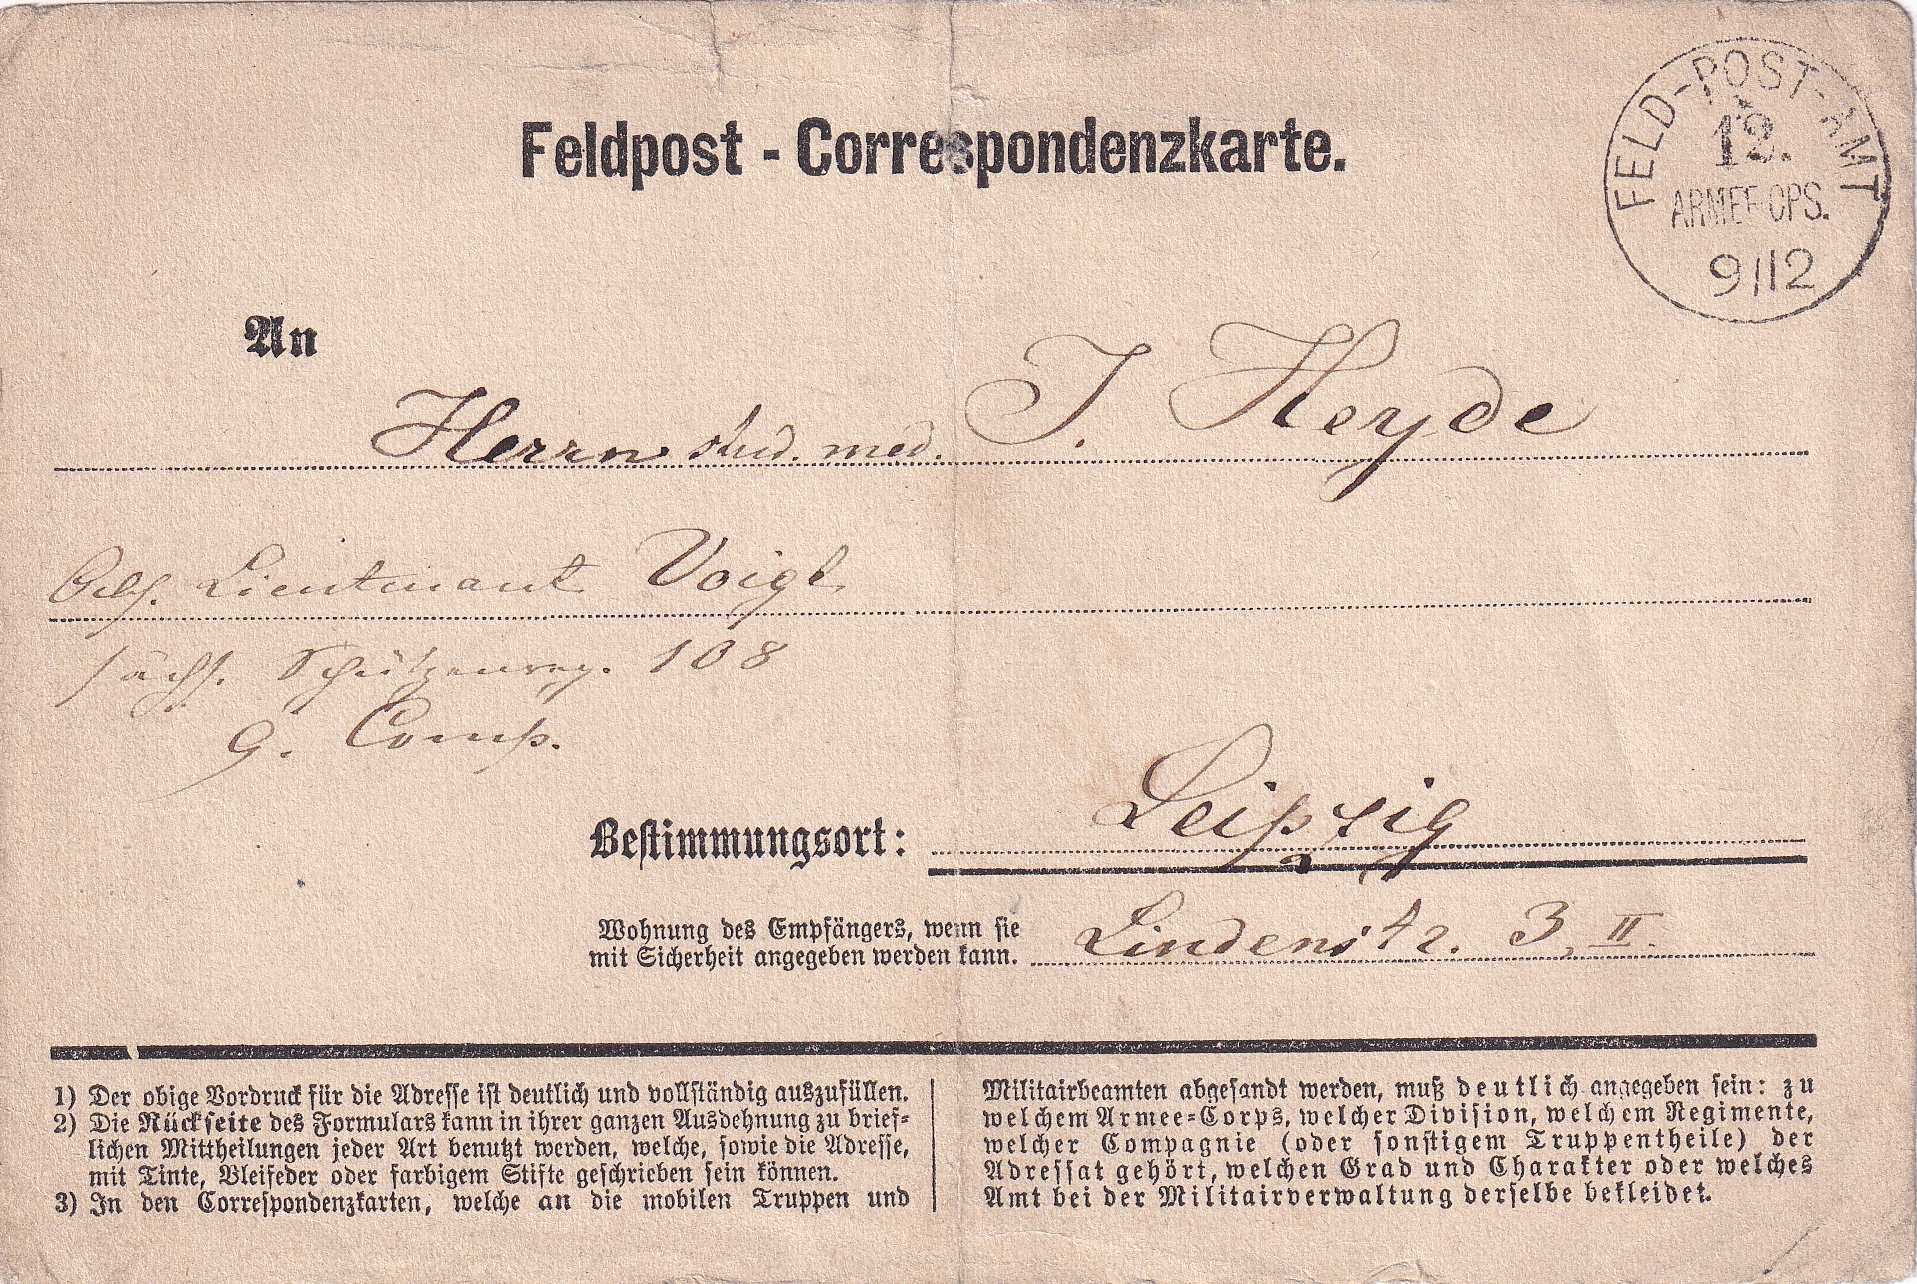 Feldpost - Correspondenzkarte.
FELD-POST-AMT
12.
ARMEE-CPS.
9/12
An
Herrn stud. med. J. Heyde
Lieutnant Voigt
sächs. Schützenreg. 108
9. Comp.
Leipzig
Bestimmungsort:
Wohnung des Empfängers, wenn sie
mit Sicherheit angegeben werden kann.
Lindenstr. 3, II.
1) Der obige Vordruck für die Adresse ist deutlich und vollständig auszufüllen.
2) Die Rückseite des Formulars kann in ihrer ganzen Ausdehnung zu brief-
lichen Mittheilungen jeder Art benutzt werden, welche, sowie die Adresse,
mit Tinte, Bleifeder oder farbigem Stifte geschrieben sein können.
3) In den Correspondenzkarten, welche an die mobilen Truppen und
Militairbeamten abgesandt werden, muß deutlich angegeben sein: zu
welchem Armee-Corps, welcher Division, welchem Regimente,
welcher Compagnie (oder sonstigem Truppentheile) der
Adressat gehört, welchen Grad und Charakter oder welches
Amt bei der Militairverwaltung derselbe bekleidet.